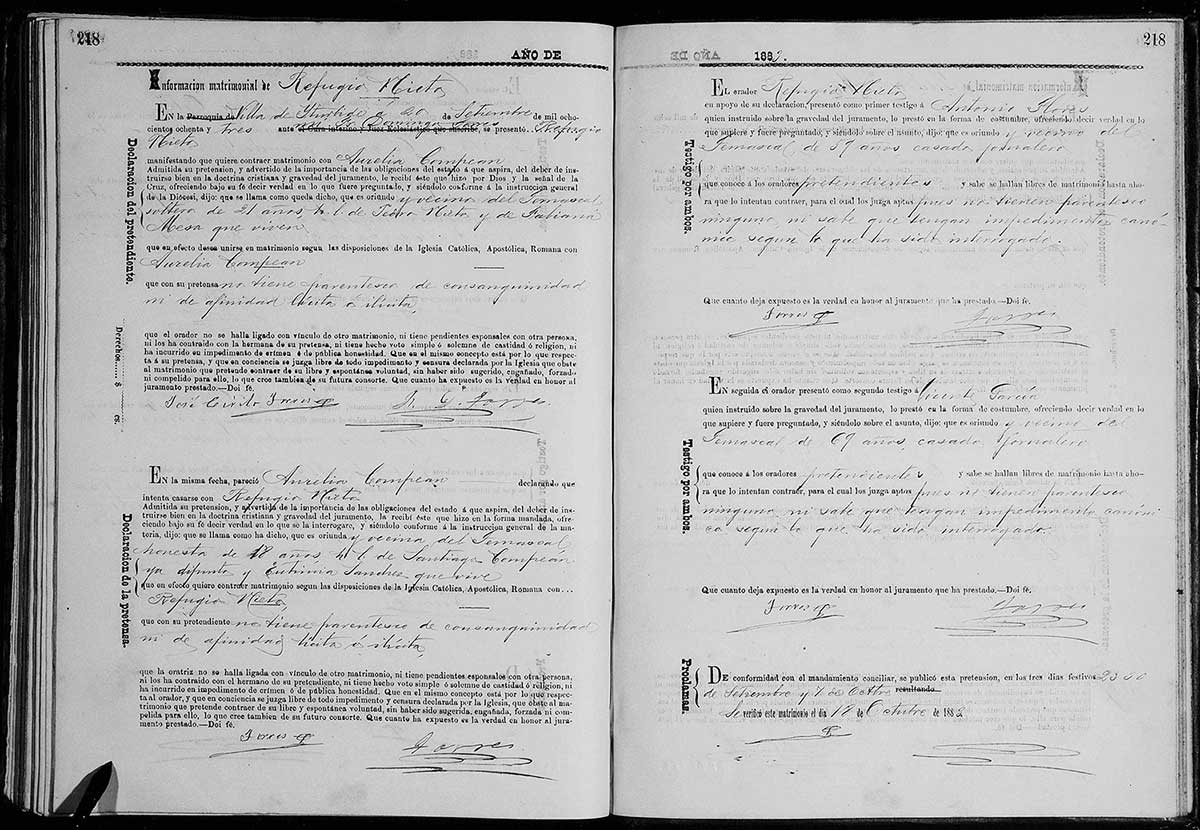 218
AÑO DE
Informacion matrimonial de Refugio Nieto
EN la Parroquia de Villa de Iturbide á 20 de Setiembre de mil ocho-
cientos ochenta y tres ante el Cura interino y Juez Eclesiástico que suscribe, se presentó Refugio
Nieto
Declaracion del pretendiente.
manifestando que quiere contraer matrimonio con Aurelia Compean
Admitida su pretension, y advertido de la importancia de las obligaciones del estado á que aspira, del deber de ins-
truirse bien en la doctrina cristiana y gravedad del juramento, le recibí éste que hizo por Dios y la señal de la
Cruz, ofreciendo bajo su fé decir verdad en lo que fuere preguntado, y siéndolo conforme á la instruccion general
de la Diócesi, dijo: que se llama como queda dicho, que es oriundo y vecino del Temascal
soltero de 21 años, h. l. de Pedro Nieto y de Fabiana
Mesa que viven
que en efecto desea unirse en matrimonio segun las disposiciones de la Iglesia Católica, Apostólica, Romana con
Aurelia Compean
que con su pretensa no tiene parentesco de consanguinidad
ni de afinidad lícita ó ilícita,
Derechos....... $ cs.
que el orador no se halla ligado con vínculo de otro matrimonio, ni tiene pendientes esponsales con otra persona,
ni los ha contraido con la hermana de su pretensa, ni tiene hecho voto simple ó solemne de castidad ó religion, ni
ha incurrido en impedimento de crímen ó de pública honestidad. Que en el mismo concepto está por lo que respec-
ta á su pretensa, y que en conciencia se juzga libre de todo impedimento y censura declarada por la Iglesia que obste
al matrimonio que pretende contraer de su libre y espontánea voluntad, sin haber sido sugerido, engañado, forzado
ni compelido para ello, lo que cree tambien de su futura consorte. Que cuanto ha expuesto es la verdad en honor al
juramento prestado.—Doi fé.
José Torres
Torres
EN la misma fecha, pareció Aurelia Compean declarando que
intenta casarse con Refugio Nieto
Declaracion de la pretensa.
Admitida su pretension, y advertida de la importancia de las obligaciones del estado á que aspira, del deber de ins-
truirse bien en la doctrina cristiana y gravedad del juramento, la recibí éste que hizo en la forma mandada, ofre-
ciendo bajo su fé decir verdad en lo que se la interrogare, y siéndolo conforme á la instruccion general de la ma-
teria, dijo: que se llama como ha dicho, que es oriunda y vecina del Temascal,
honesta de 18 años, h. l. de Santiago Compean
ya difunto y Eutimia Sanchez que vive
que en efecto quiere contraer matrimonio segun las disposiciones de la Iglesia Católica, Apostólica, Romana con...
Refugio Nieto
que con su pretendiente no tiene parentesco de consanguinidad
ni de afinidad lícita ó ilícita,
que la oratriz no se halla ligada con vínculo de otro matrimonio, ni tiene pendientes esponsales con otra persona,
ni los ha contraido con el hermano de su pretendiente, ni tiene hecho voto simple ó solemne de castidad ó religion, ni
ha incurrido en impedimento de crímen ó de pública honestidad. Que en el mismo concepto está por lo que respec-
ta al orador, y que en conciencia se juzga libre de todo impedimento y censura declarada por la Iglesia, que obste al ma-
trimonio que pretende contraer de su libre y espontánea voluntad, sin haber sido sugerida, engañada, forzada ni com-
pelida para ello, lo que cree tambien de su futuro consorte. Que cuanto ha expuesto es la verdad en honor al jura-
mento prestado.—Doi fé.
Torres
Torres
218
AÑO DE 1883.
EL orador Refugio Nieto
en apoyo de su declaracion, presentó como primer testigo á Antonio Flores
quien instruido sobre la gravedad del juramento, lo prestó en la forma de costumbre, ofreciendo decir verdad en lo
que supiere y fuere preguntado, y siéndolo sobre el asunto, dijo: que es oriundo y vecino del
Temascal de 57 años casado jornalero
Testigo por ambos.
que conoce á los oradores pretendientes y sabe se hallan libres de matrimonio hasta aho-
ra que lo intentan contraer, para el cual los juzga aptos pues no tienen parentesco
ninguno ni sabe que tengan impedimento canó-
nico segun lo que ha sido interrogado.
Que cuanto deja expuesto es la verdad en honor al juramento que ha prestado.—Doi fé.
Torres
Torres
EN seguida el orador presentó como segundo testigo á Vicente García
quien instruido sobre la gravedad del juramento, lo prestó en la forma de costumbre, ofreciendo decir verdad en lo
que supiere y fuere preguntado, y siéndolo sobre el asunto, dijo: que es oriundo y vecino del
Temascal de 67 años, casado jornalero
Testigo por ambos.
que conoce á los oradores pretendientes y sabe se hallan libres de matrimonio hasta aho-
ra que lo intentan contraer, para el cual los juzga aptos pues no tienen parentesco
ninguno ni sabe que tengan impedimento canóni-
co segun lo que ha sido interrogado.
Que cuanto deja expuesto es la verdad en honor al juramento que ha prestado.—Doi fé.
Torres
Torres
Proclamas.
DE conformidad con el mandamiento conciliar, se publicó esta pretension, en los tres dias festivos 23 30
de Setiembre y 7 de Octbre resultando
Se verificó este matrimonio el dia 18 de Octubre de 1883